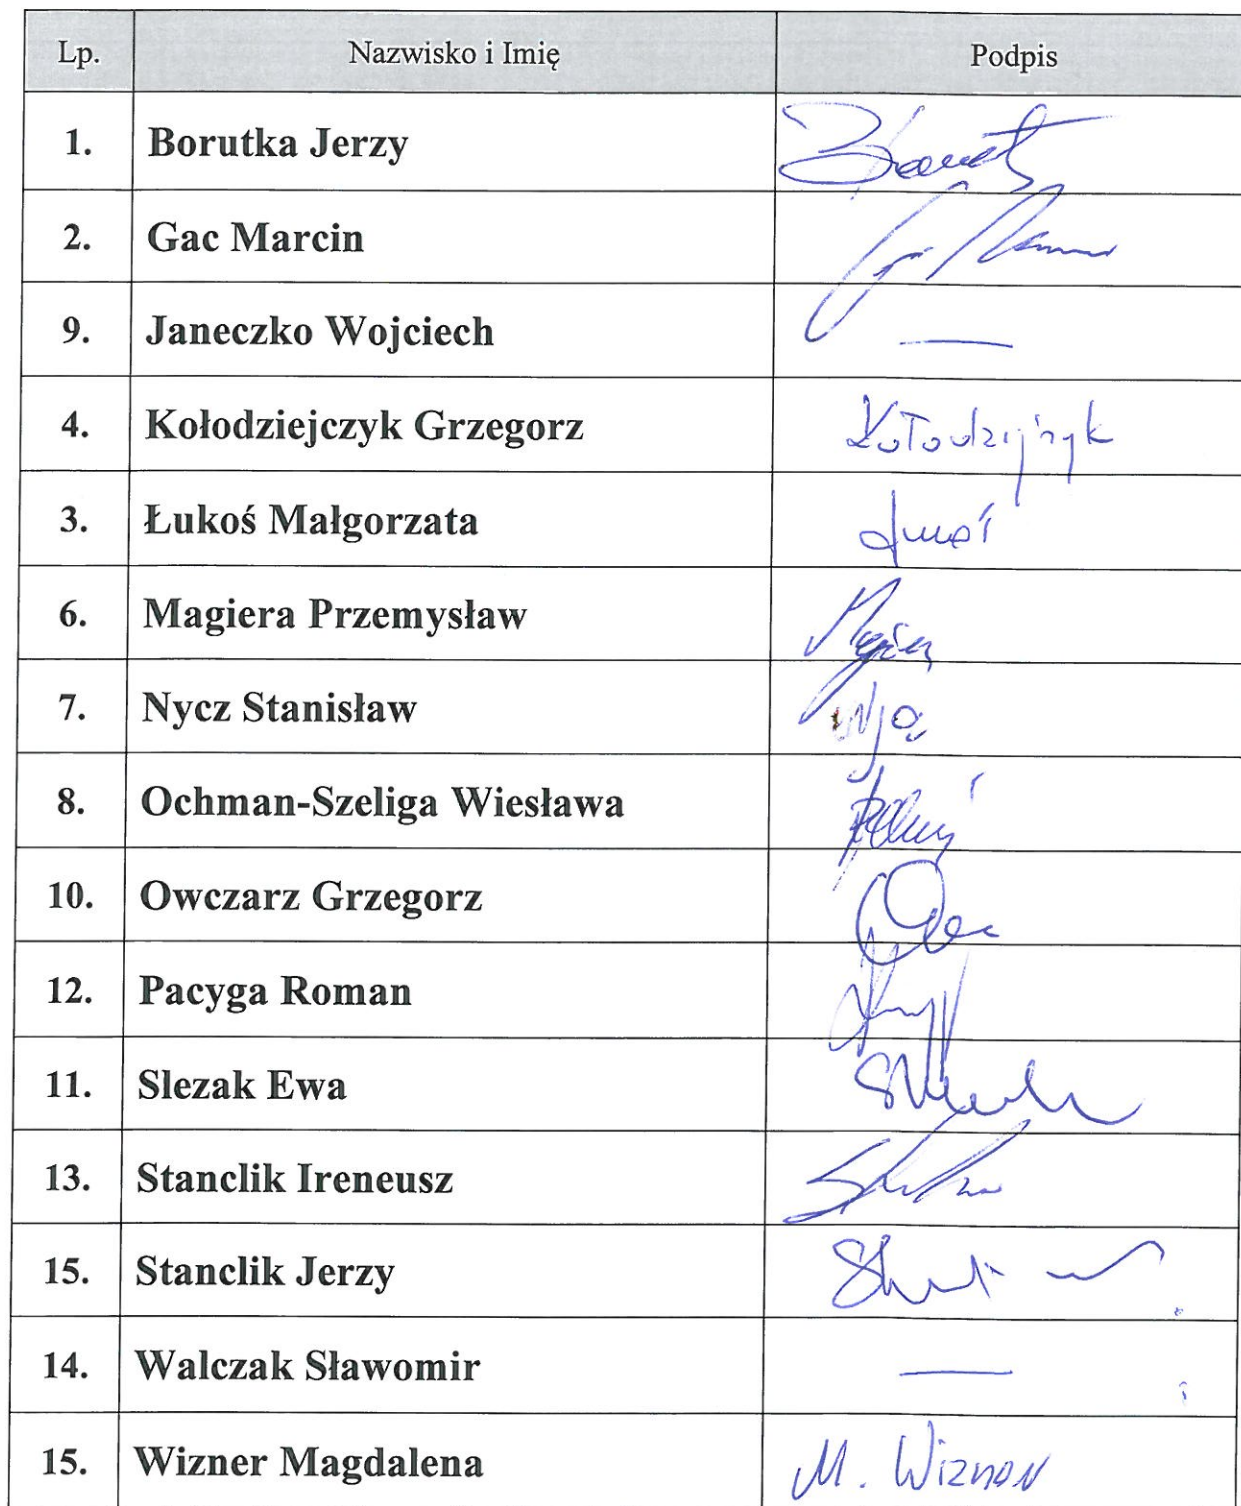 Lp. Nazwisko i Imię Podpis
1. Borutka Jerzy
2. Gac Marcin
9. Janeczko Wojciech —
4. Kołodziejczyk Grzegorz Kołodziejczyk
3. Łukoś Małgorzata
6. Magiera Przemysław
7. Nycz Stanisław
8. Ochman-Szeliga Wiesława
10. Owczarz Grzegorz
12. Pacyga Roman
11. Slezak Ewa
13. Stanclik Ireneusz
15. Stanclik Jerzy
14. Walczak Sławomir —
15. Wizner Magdalena M. Wizner